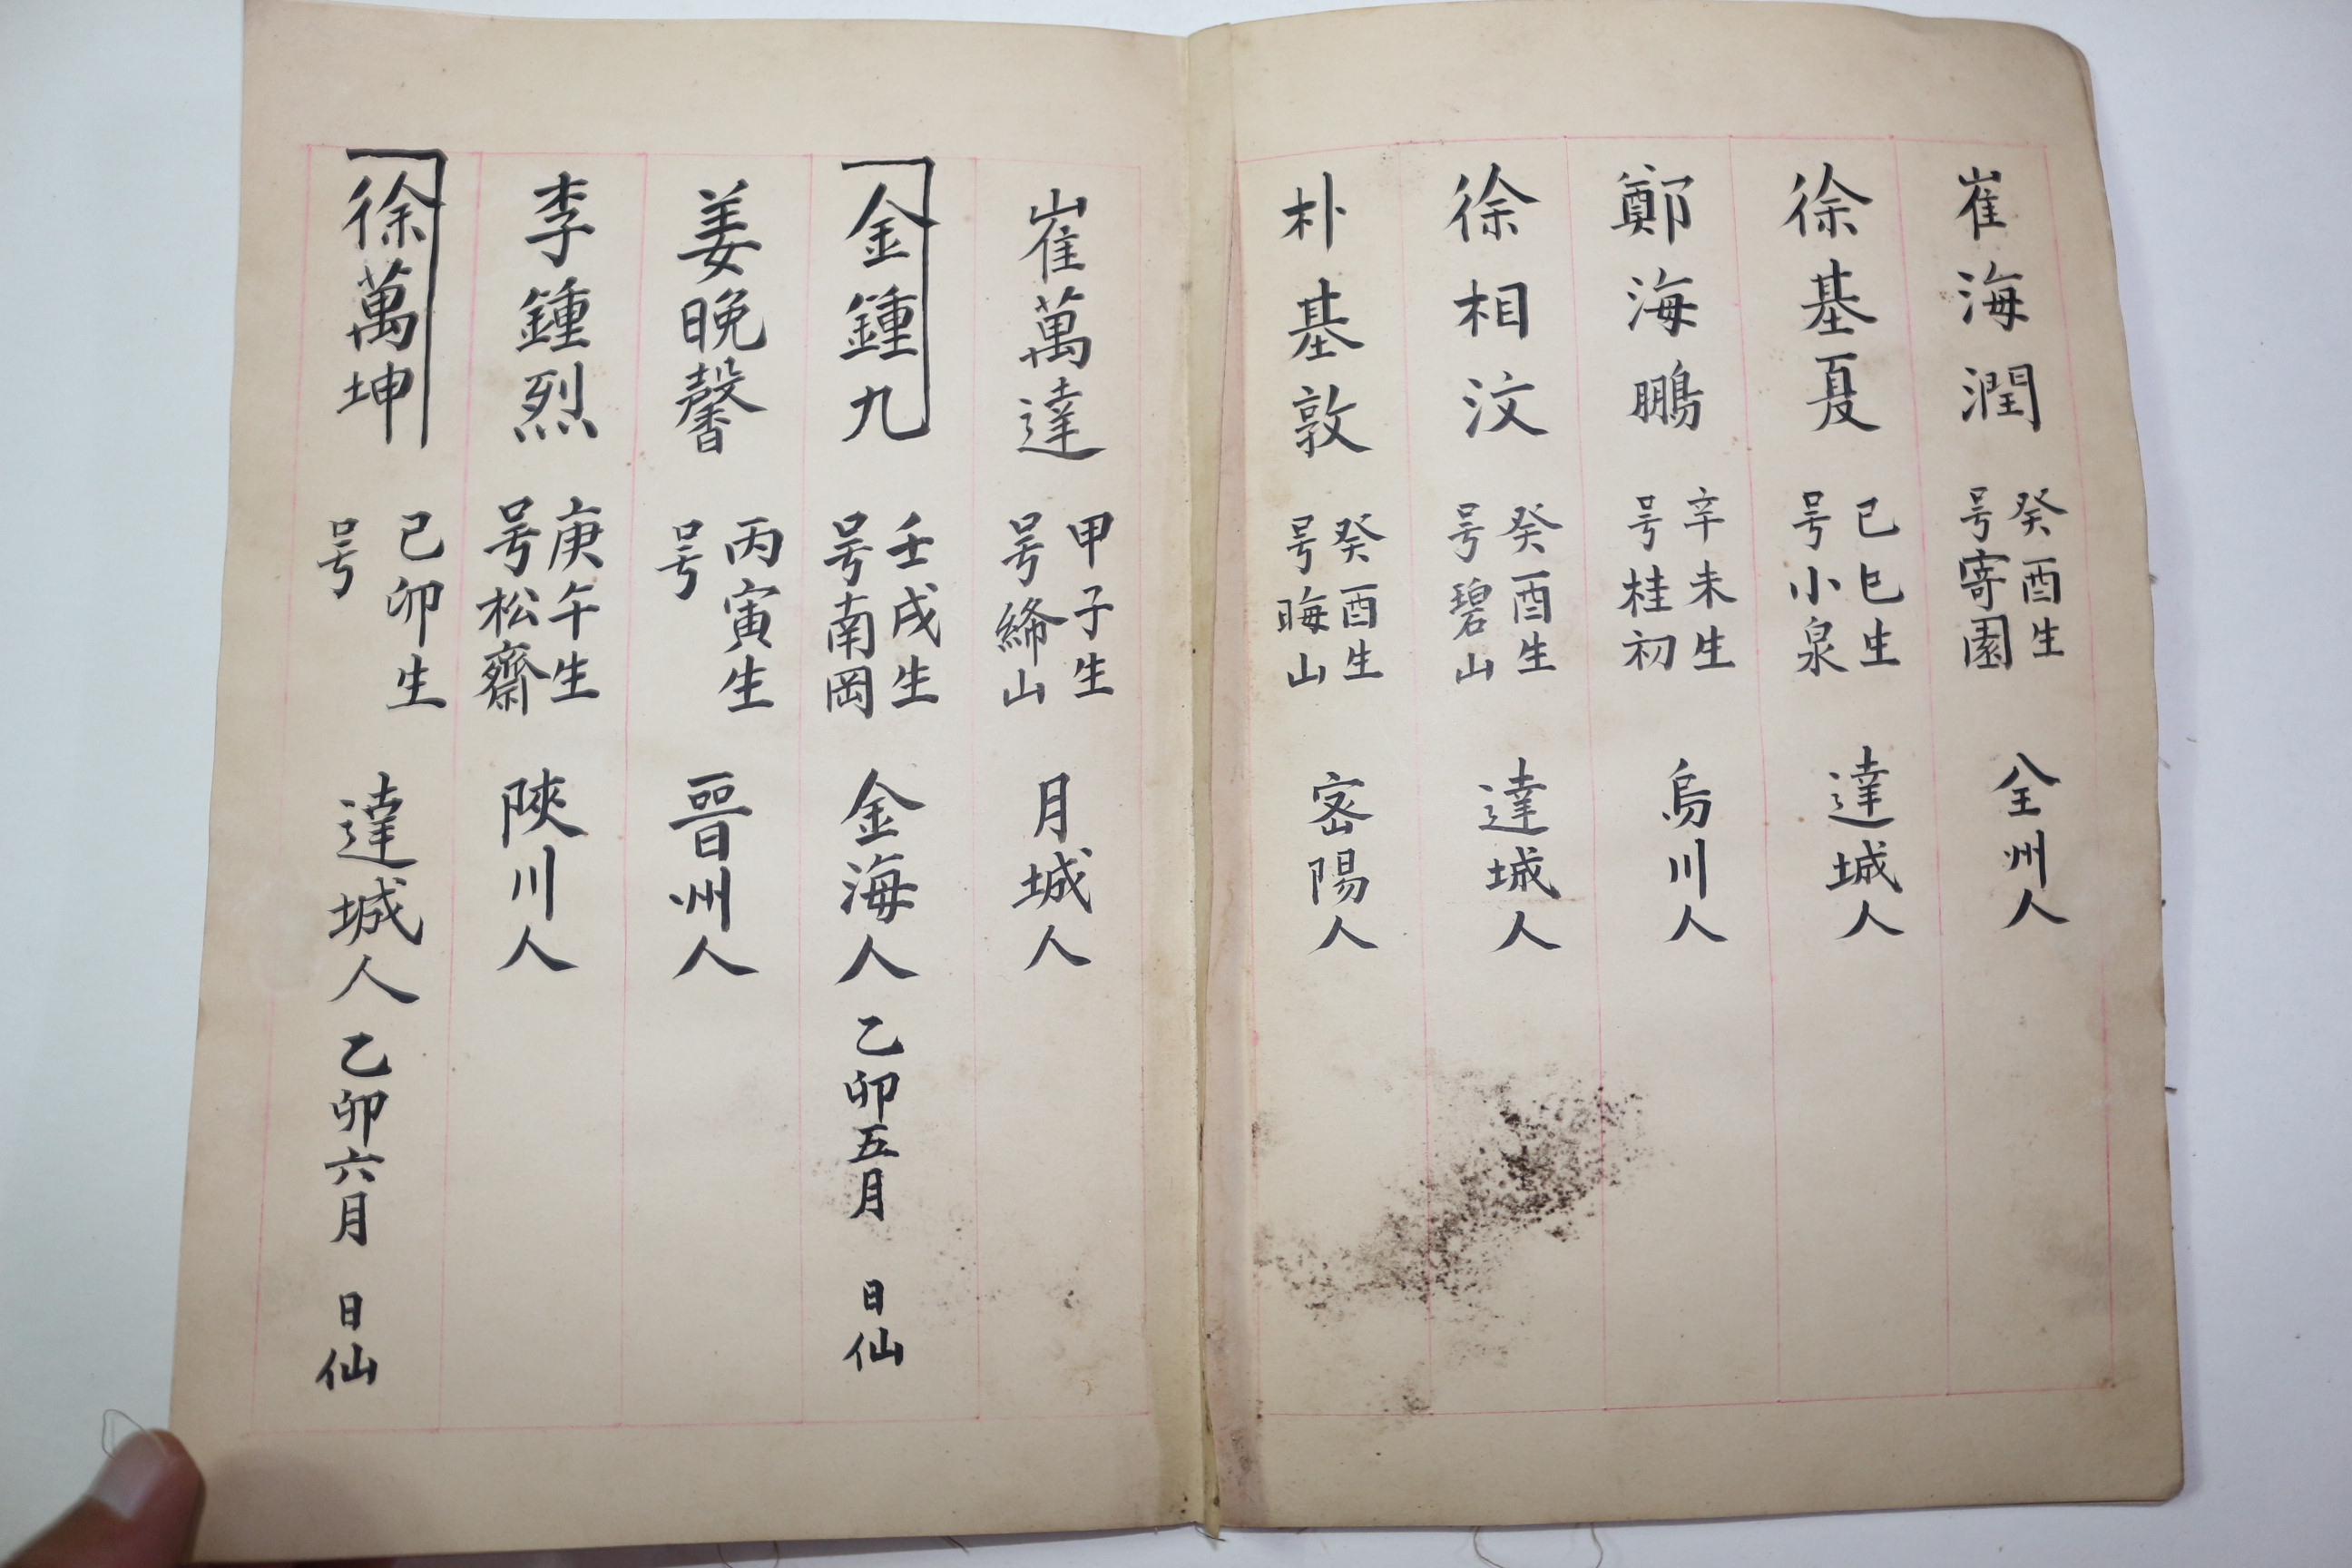 崔海潤 癸酉生 号寄園 全州人
徐基夏 己巳生 号小泉 達城人
鄭海鵬 辛未生 号桂初 烏川人
徐相汶 癸酉生 号碧山 達城人
朴基敦 癸酉生 号晦山 密陽人
崔萬達 甲子生 号締山 月城人
金鍾九 壬戌生 号南岡 金海人 乙卯五月 日仙
姜晩馨 丙寅生 号 晉州人
李鍾烈 庚午生 号松齋 陜川人
徐萬坤 己卯生 号 達城人 乙卯六月 日仙